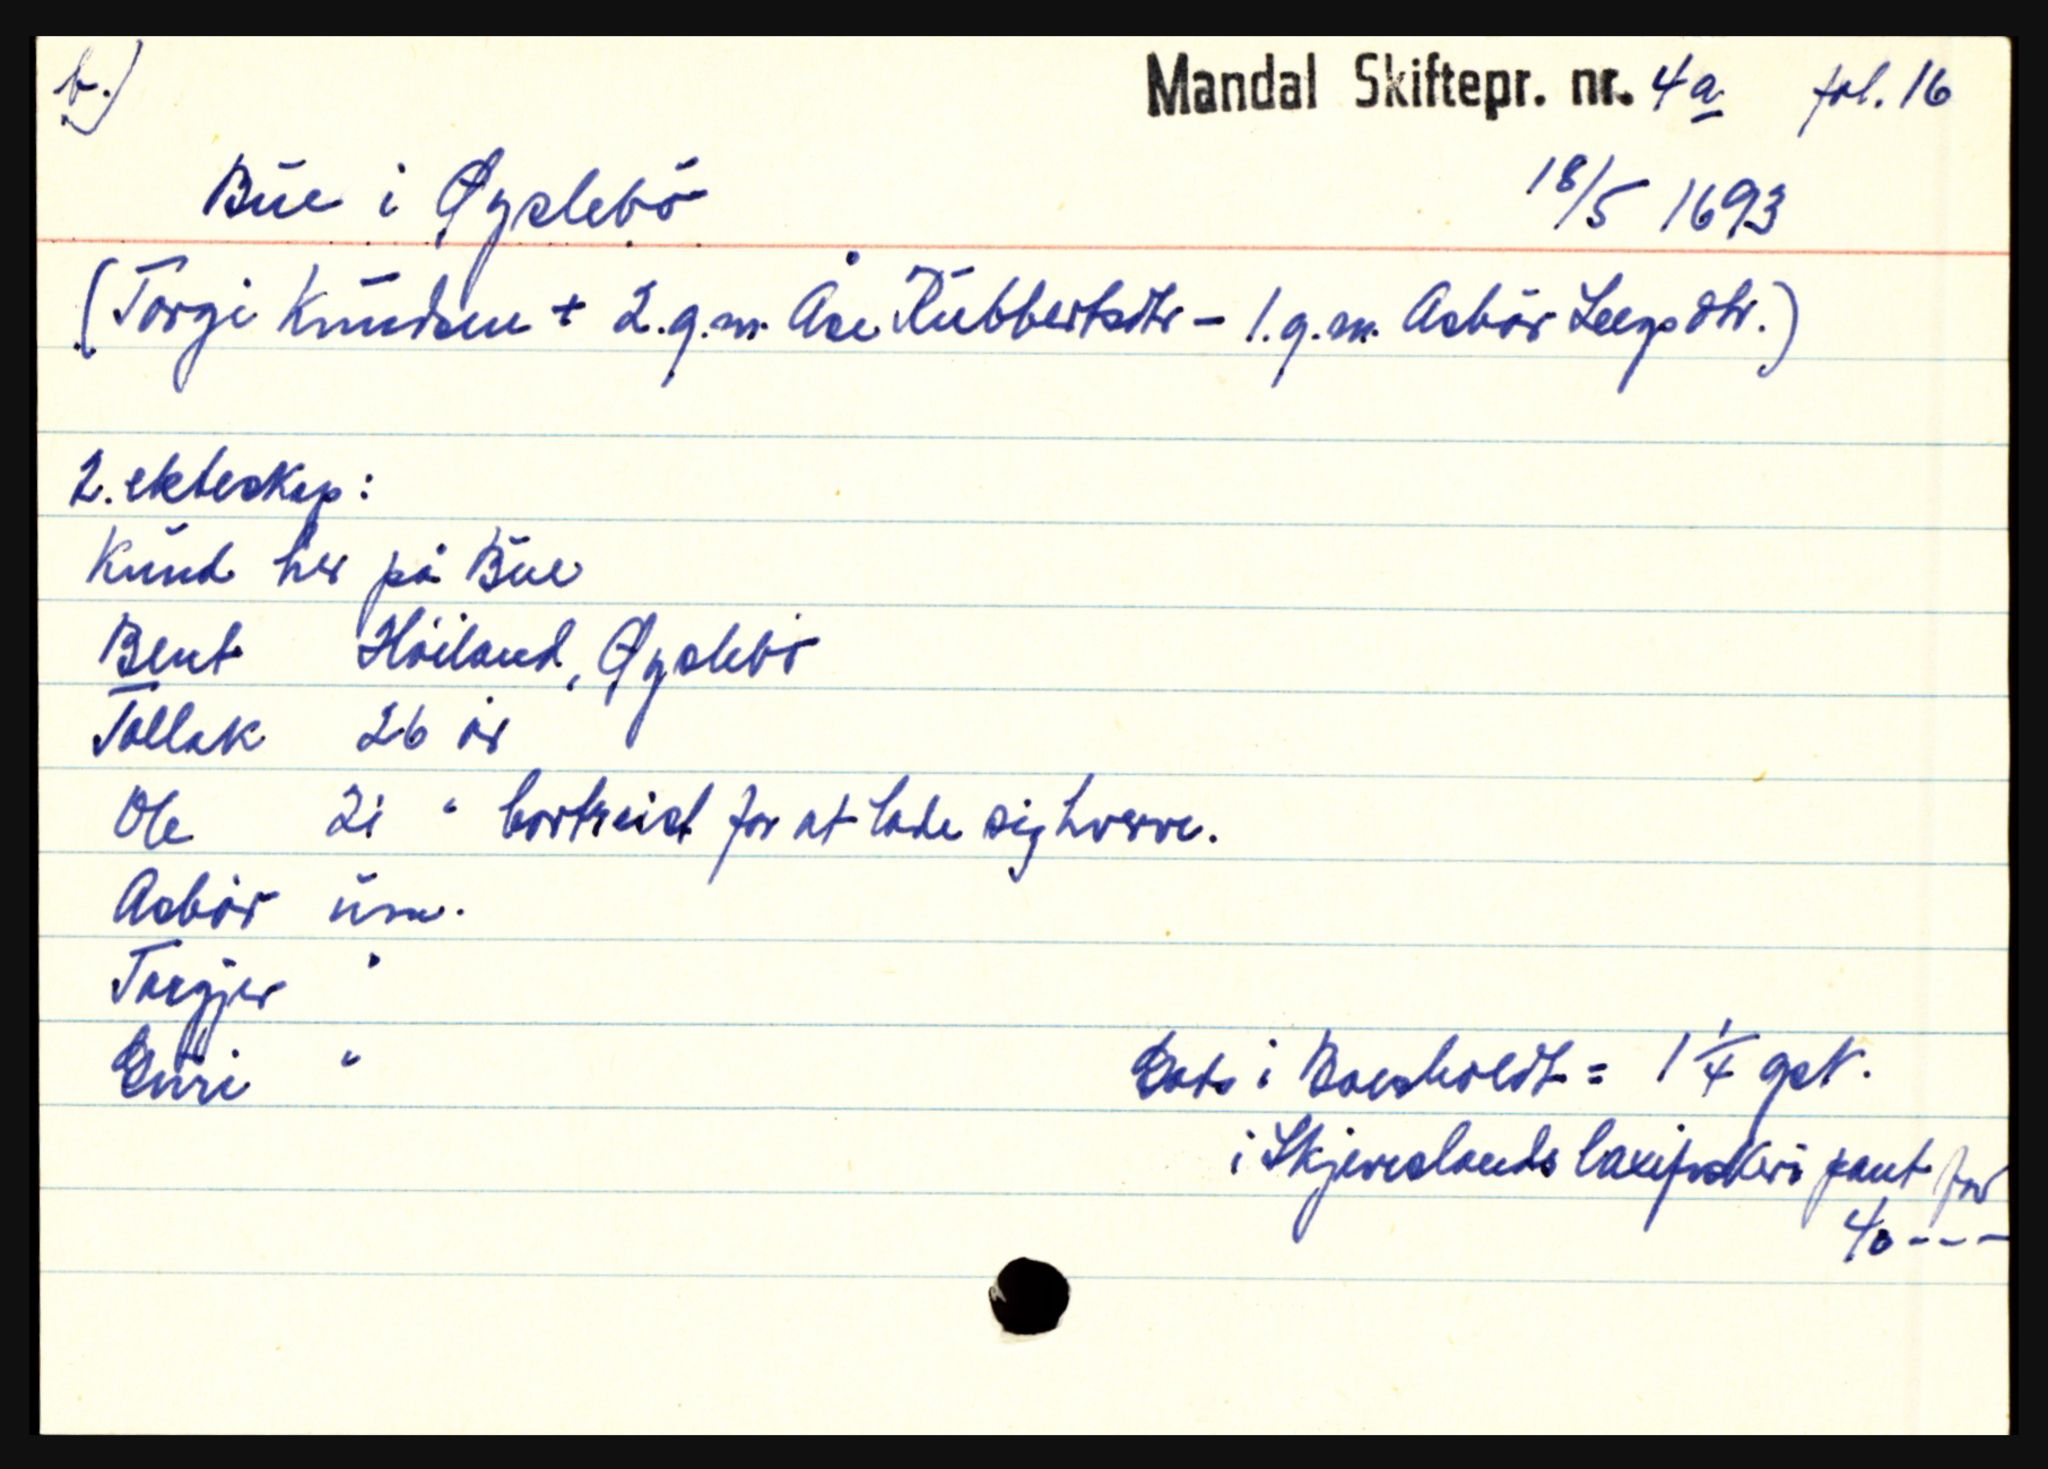 b.)
Mandal Skiftepr. nr. 4a fol. 16
Bue i Øyslebö
18/5 1693
(Torgi Knudsen + 2.g.m. Åse Rubbertsdtr - 1.g.m. Asbör dtr.)
2. ekteskap:
Knud her på Bue
Bent Höiland, Øyslebö
Tollak 26 år
Ole 21 " bortreist for at lade sig hverve.
Asbör um.
Targjer "
Guri "
Gods i = 1 1/4 gsk.
i Skjerneslands laxefiskeri pant for
40---